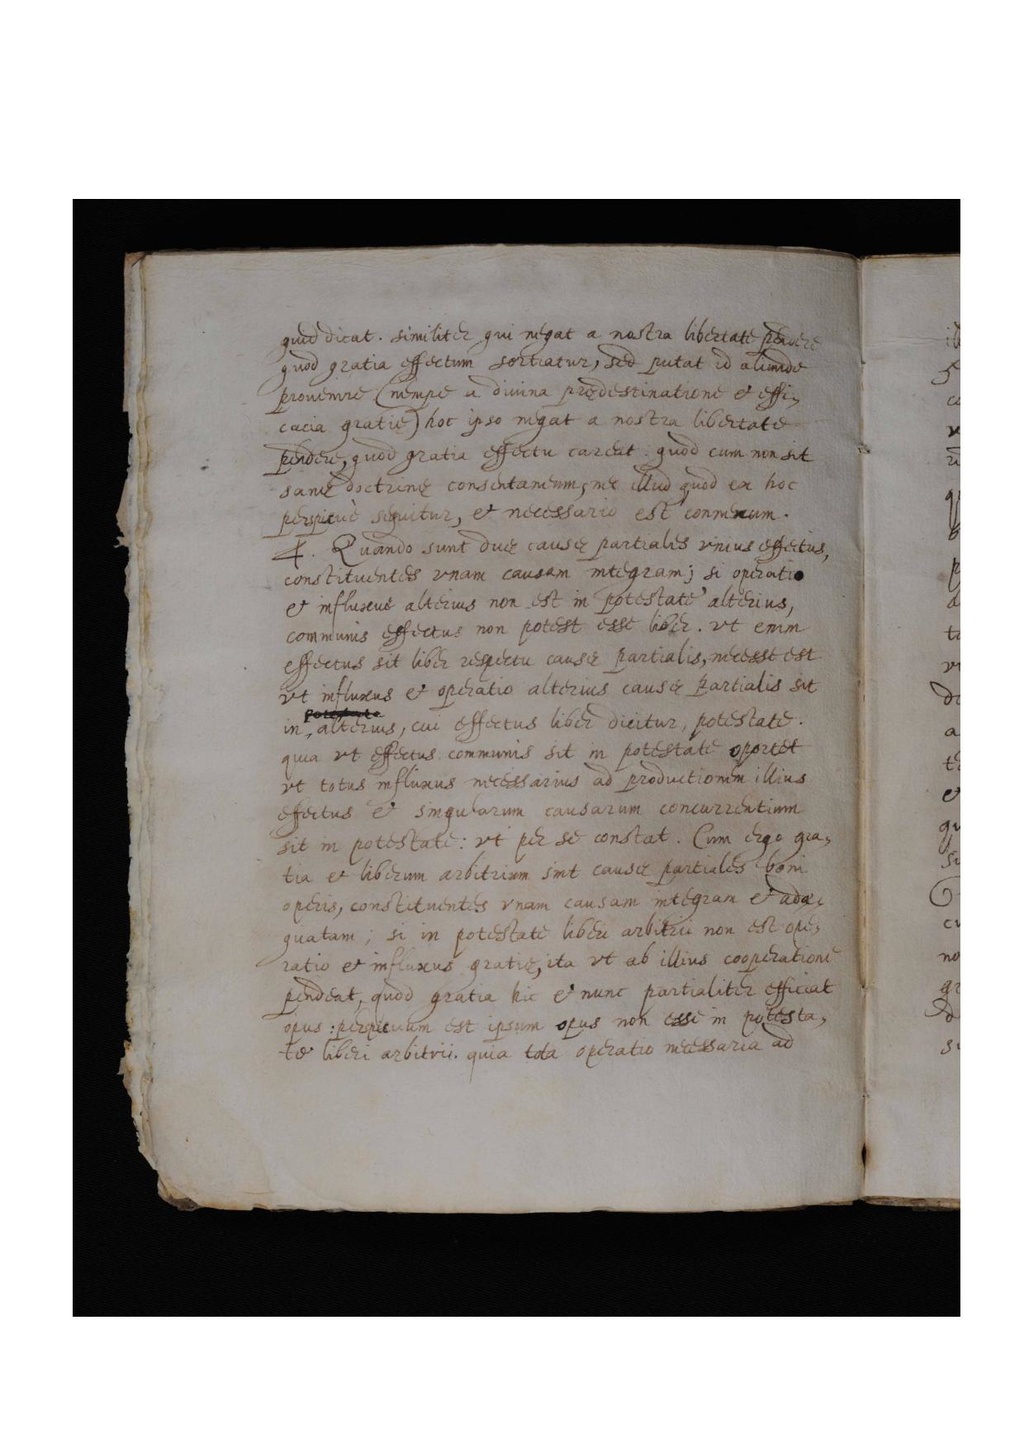 quid dicat. similiter qui negat a nostra libertate pendere
quod gratia effectum sortiatur, sed putat id aliunde
prouenire (nempe a diuina prędestinatione et effi,
cacia gratię) hoc ipso negat a nostra libertate
pendere, quod gratia effectu careat. quod cum non sit
sanę doctrinę consentaneum, nec illud quod ex hoc
perspicuè sequitur, et necessario est
4. Quando sunt duę causę partiales vnius effectus,
constituentes vnam causam integram; si operatio
et influxus alterius non est in potestate alterius,
communis effectus non potest esse liber. vt enim
effectus sit liber respectu causę partialis, necesse est
vt influxus et operatio alterius causę partialis sit
potestate
in alterius, cui effectus liber dicitur, potestate.
quia vt effectus communis sit in potestate oportet
vt totus influxus necessarius ad productionem illius
effectus et singularum causarum concurrentium
sit in potestate: vt per se constat. Cum ergo gra,
tia et liberum arbitrium sint causę partiales boni
operis, constituentes vnam causam integram et adæ,
quatam; si in potestate liberi arbitrii non est ope,
ratio et influxus gratię, ita vt ab illius cooperatione
pendeat, quod gratia hic et nunc partialiter efficiat
opus: perspicuum est ipsum opus non esse in potesta,
te liberi arbitrii. quia tota operatio necessaria ad